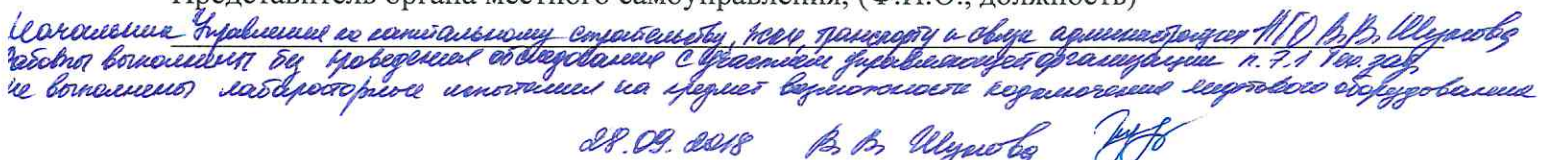 Представитель органа местного самоуправления, (Ф.И.О., должность)
Начальник Управления по капитальному строительству, ЖКХ, транспорту и связи администрации МГО В.В. Шунова
Работы выполнены без проведения обследования с участием управляющей организации п. 7.1 Тех. зад.
не выполнены лабораторные испытания на предмет возможности подключения лифтового оборудования
28.09.2018 В. В. Шунова